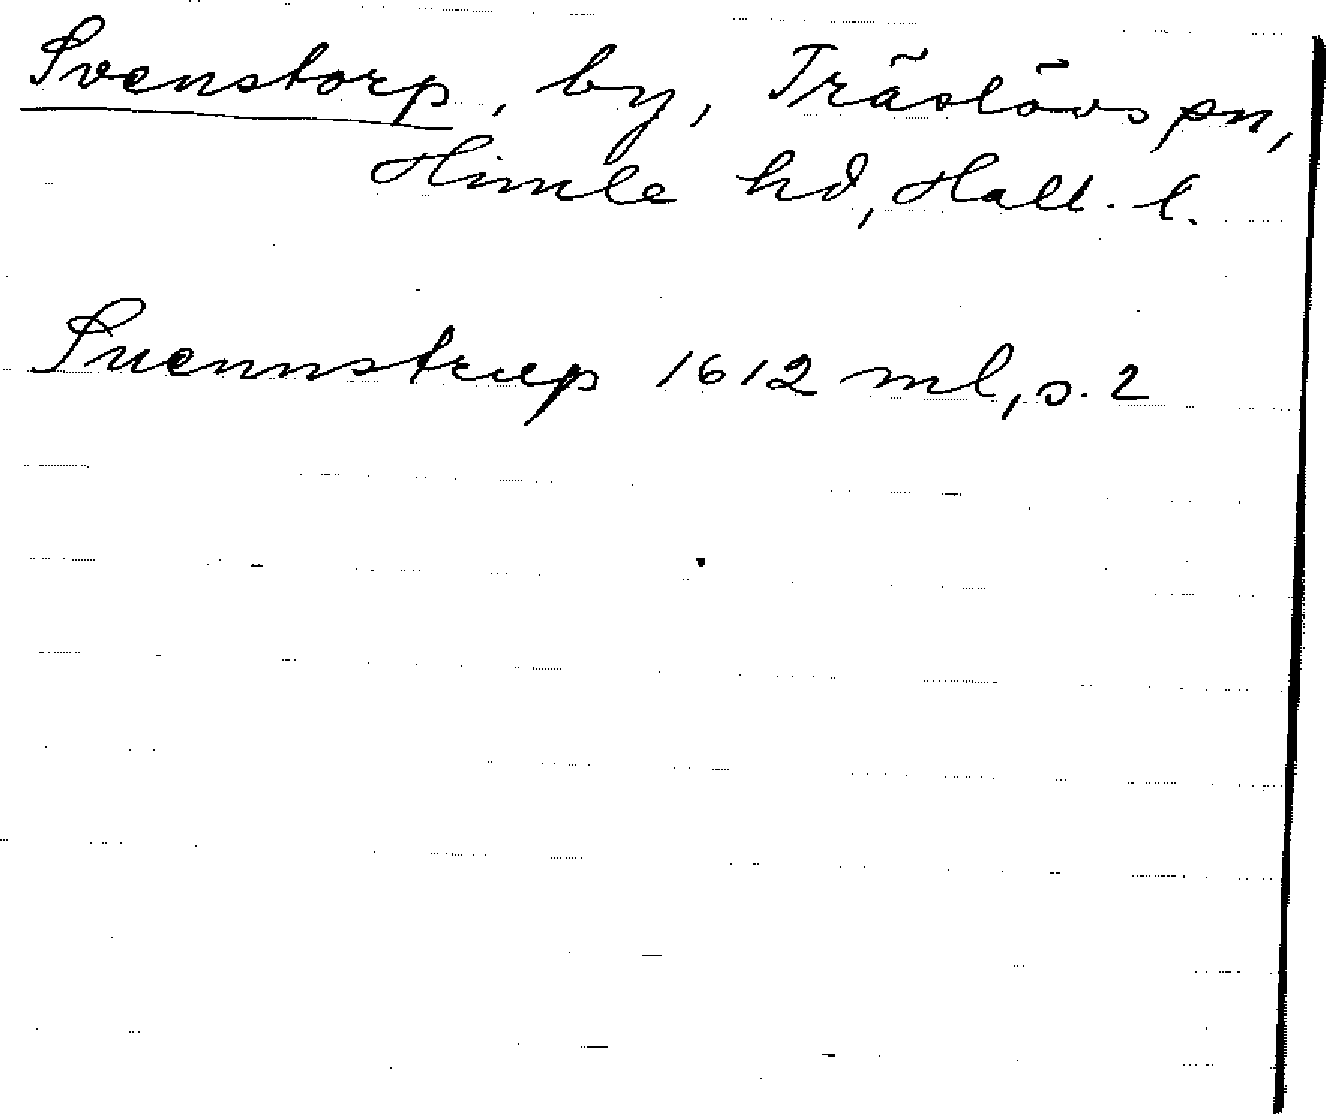 Svenstorp, by, Träslövs sn,
Himle hd, Hall. l.
Suennstrup 1612 ml, s. 2